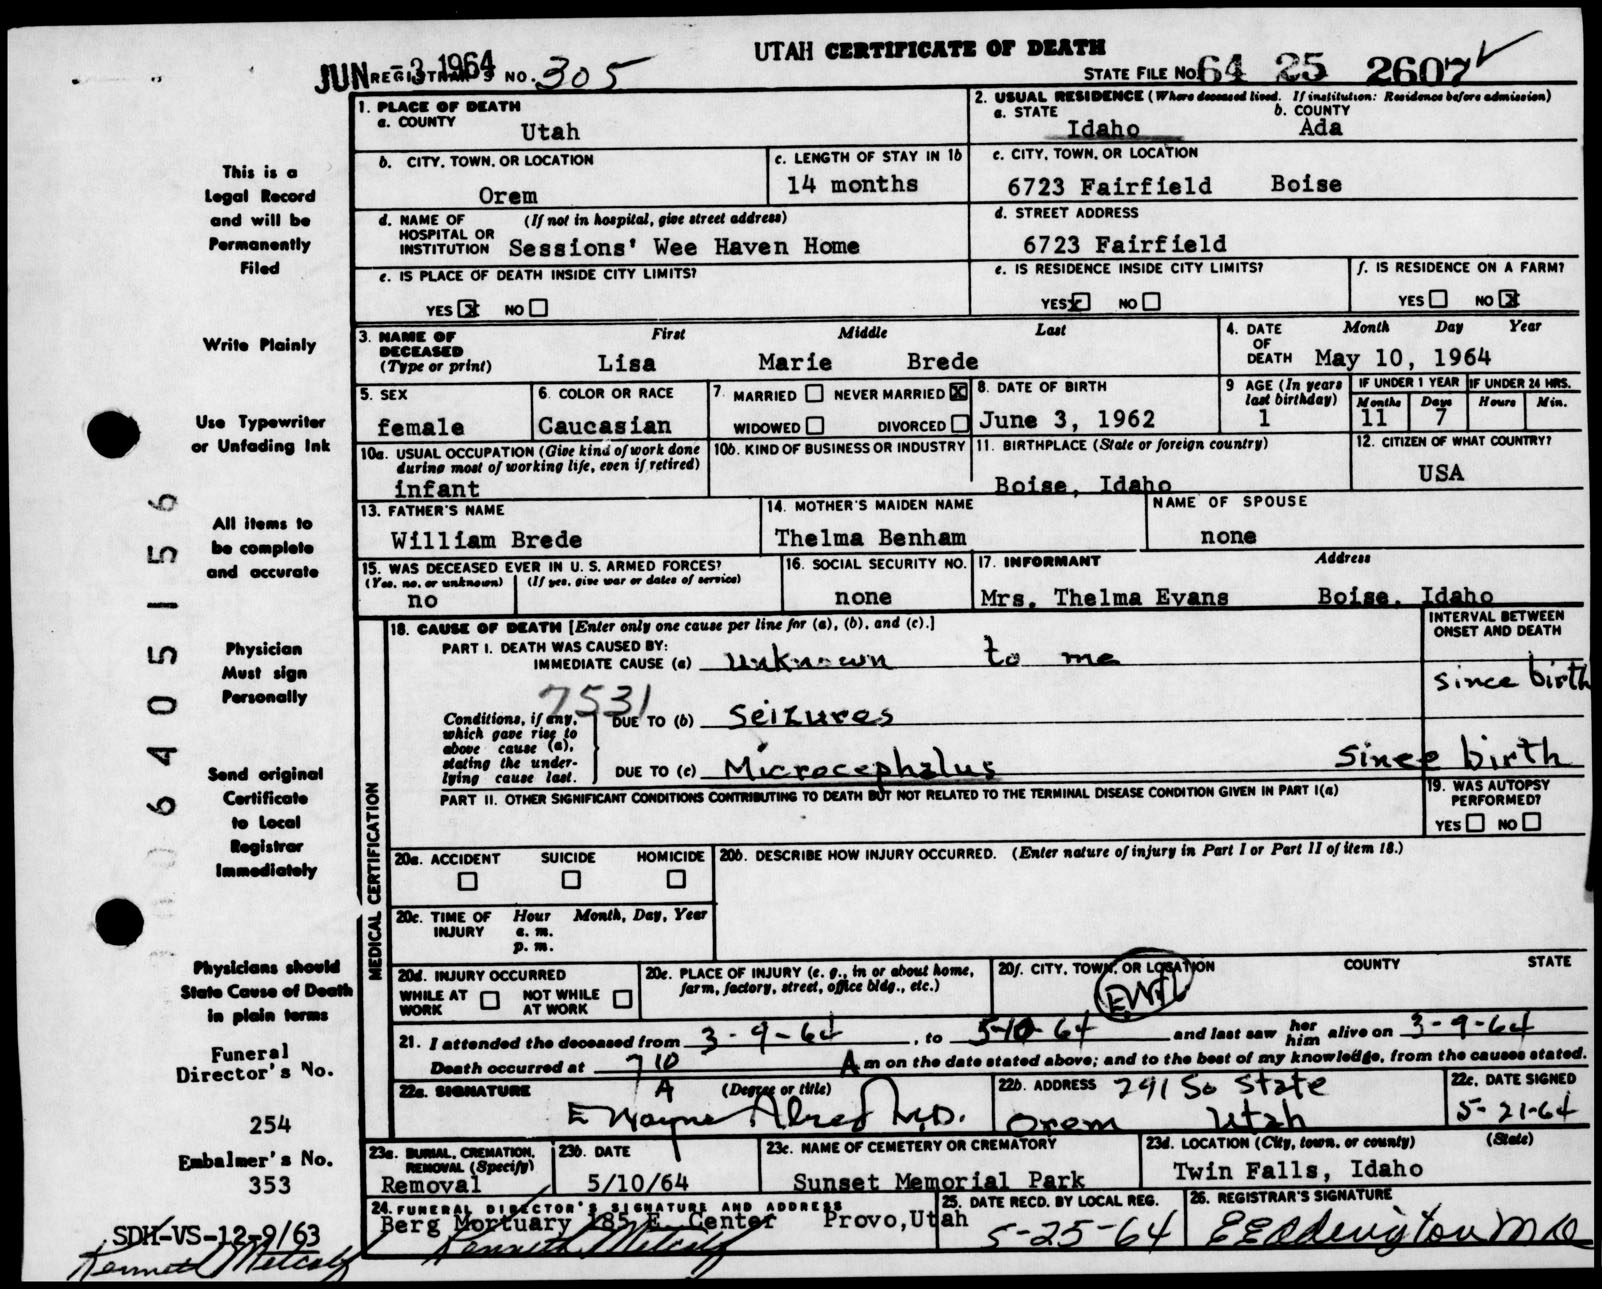 UTAH CERTIFICATE OF DEATH
JUN -3 1964 REGISTRAR'S NO. 305 STATE FILE NO. 64 25 2607
1. PLACE OF DEATH
a. COUNTY Utah
2. USUAL RESIDENCE (Where deceased lived. If institution: Residence before admission)
a. STATE Idaho b. COUNTY Ada
b. CITY, TOWN, OR LOCATION Orem
c. LENGTH OF STAY IN 1b 14 months
c. CITY, TOWN, OR LOCATION
6723 Fairfield Boise
d. NAME OF HOSPITAL OR INSTITUTION (If not in hospital, give street address)
Sessions' Wee Haven Home
d. STREET ADDRESS
6723 Fairfield
e. IS PLACE OF DEATH INSIDE CITY LIMITS?
YES [x] NO [ ]
e. IS RESIDENCE INSIDE CITY LIMITS?
YES [x] NO [ ]
f. IS RESIDENCE ON A FARM?
YES [ ] NO [x]
3. NAME OF DECEASED (Type or print) First Middle Last
Lisa Marie Brede
4. DATE OF DEATH Month Day Year
May 10, 1964
5. SEX
female
6. COLOR OR RACE
Caucasian
7. MARRIED [ ] NEVER MARRIED [x]
WIDOWED [ ] DIVORCED [ ]
8. DATE OF BIRTH
June 3, 1962
9 AGE (In years last birthday)
1
IF UNDER 1 YEAR Months Days
11 7
IF UNDER 24 HRS. Hours Min.
10a. USUAL OCCUPATION (Give kind of work done during most of working life, even if retired)
infant
10b. KIND OF BUSINESS OR INDUSTRY
11. BIRTHPLACE (State or foreign country)
Boise, Idaho
12. CITIZEN OF WHAT COUNTRY?
USA
13. FATHER'S NAME
William Brede
14. MOTHER'S MAIDEN NAME
Thelma Benham
NAME OF SPOUSE
none
15. WAS DECEASED EVER IN U. S. ARMED FORCES?
(Yes, no, or unknown) (If yes, give war or dates of service)
no
16. SOCIAL SECURITY NO.
none
17. INFORMANT Address
Mrs. Thelma Evans Boise, Idaho
MEDICAL CERTIFICATION
18. CAUSE OF DEATH [Enter only one cause per line for (a), (b), and (c).]
INTERVAL BETWEEN ONSET AND DEATH
PART I. DEATH WAS CAUSED BY:
IMMEDIATE CAUSE (a) unknown to me
since birth
7531
Conditions, if any, which gave rise to above cause (a), stating the underlying cause last.
DUE TO (b) Seizures
DUE TO (c) Microcephalus since birth
PART II. OTHER SIGNIFICANT CONDITIONS CONTRIBUTING TO DEATH BUT NOT RELATED TO THE TERMINAL DISEASE CONDITION GIVEN IN PART I(a)
19. WAS AUTOPSY PERFORMED?
YES [ ] NO [ ]
20a. ACCIDENT SUICIDE HOMICIDE
20b. DESCRIBE HOW INJURY OCCURRED. (Enter nature of injury in Part I or Part II of item 18.)
20c. TIME OF INJURY Hour Month, Day, Year
a. m.
p. m.
20d. INJURY OCCURRED
WHILE AT WORK [ ] NOT WHILE AT WORK [ ]
20e. PLACE OF INJURY (e. g., in or about home, farm, factory, street, office bldg., etc.)
20f. CITY, TOWN, OR LOCATION COUNTY STATE
21. I attended the deceased from 3-9-64, to 5-10-64 and last saw her him alive on 3-9-64
Death occurred at 7 10 A m on the date stated above; and to the best of my knowledge, from the causes stated.
22a. SIGNATURE (Degree or title)
E Wayne Alred M.D.
22b. ADDRESS 291 So State
Orem Utah
22c. DATE SIGNED
5-21-64
23a. BURIAL, CREMATION, REMOVAL (Specify)
Removal
23b. DATE
5/10/64
23c. NAME OF CEMETERY OR CREMATORY
Sunset Memorial Park
23d. LOCATION (City, town, or county) (State)
Twin Falls, Idaho
24. FUNERAL DIRECTOR'S SIGNATURE AND ADDRESS
Berg Mortuary 185 E. Center Provo, Utah
Kenneth Metcalf
25. DATE RECD. BY LOCAL REG.
5-25-64
26. REGISTRAR'S SIGNATURE
This is a
Legal Record
and will be
Permanently
Filed
Write Plainly
Use Typewriter
or Unfading Ink
All items to
be complete
and accurate
Physician
Must sign
Personally
Send original
Certificate
to Local
Registrar
Immediately
Physicians should
State Cause of Death
in plain terms
Funeral
Director's No.
254
Embalmer's No.
353
SDH-VS-12-9/63
Kenneth Metcalf